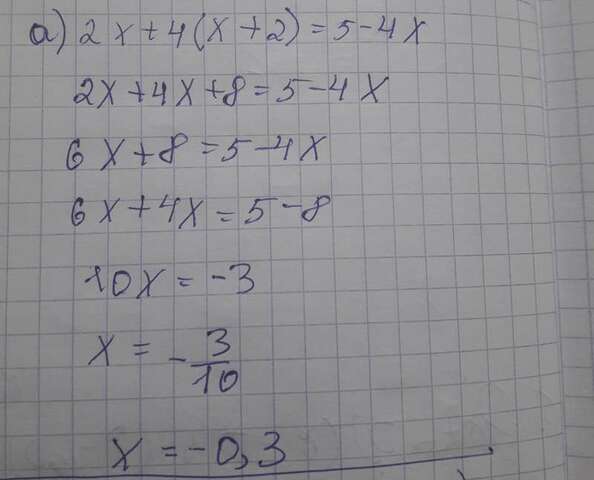 а) 2x+4(x+2)=5-4x
2x+4x+8=5-4x
6x+8=5-4x
6x+4x=5-8
10x=-3
x=-3/10
x=-0,3